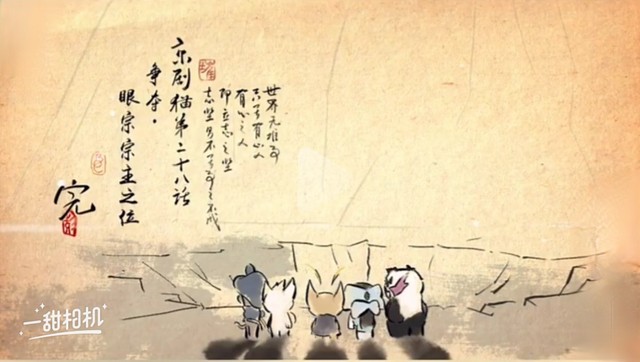 世界无难事
只畏有心人
有心之人
即立志之坚
志坚则不畏事之不成
京剧猫第二十八话
争夺·
眼宗宗主之位
完
一甜相机